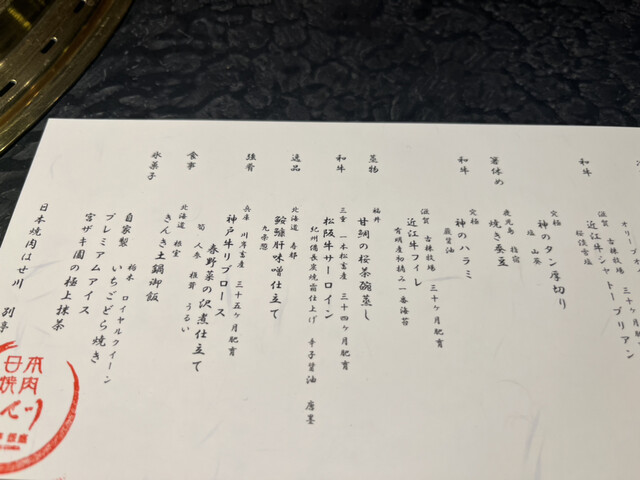 和牛
滋賀 古株牧場 三十ヶ月肥育
近江牛シャトーブリアン
桜漬雪塩
究極
神のタン厚切り
塩 山葵
箸休め
鹿児島 指宿
焼き蚕豆
和牛
究極
神のハラミ
醤油
滋賀 古株牧場 三十ヶ月肥育
近江牛フィレ
有明産初摘み一番海苔
蒸物
福井
甘鯛の桜茶碗蒸し
和牛
三重 一本松畜産 三十四ヶ月肥育
松阪牛サーロイン
紀州備長炭焼霜仕上げ 辛子醤油 唐墨
逸品
北海道 寿都
鮟鱇肝味噌仕立て
九条葱
強肴
兵庫 川岸畜産 三十五ヶ月肥育
神戸牛リブロース
春野菜の沢煮仕立て
筍 人参 椎茸 うるい
食事
北海道 根室
きんき土鍋御飯
氷菓子
栃木 ロイヤルクイーン
自家製 いちごどら焼き
プレミアムアイス
宮ザキ園の極上抹茶
日本焼肉はせ川 別亭
日本
焼肉